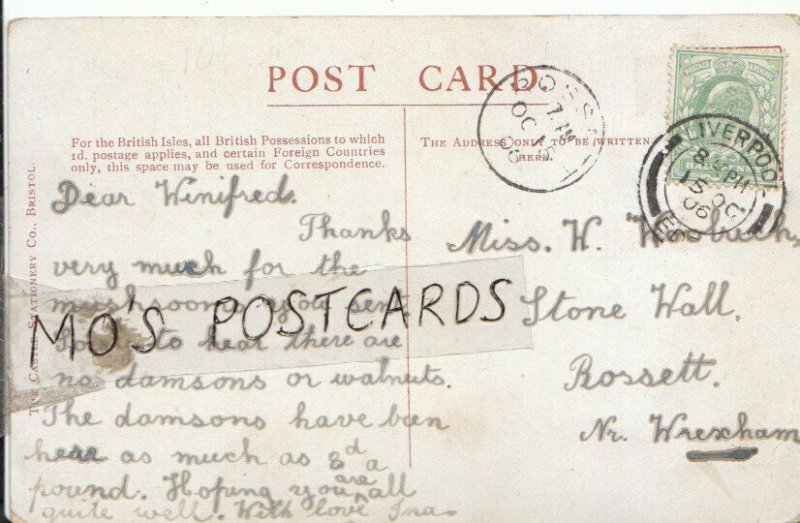 POST CARD.
For the British Isles, all British Possessions to which
1d. postage applies, and certain Foreign Countries
only, this space may be used for Correspondence.
THE ADDRESS ONLY TO BE WRITTEN
HERE.
THE CASTER STATIONERY CO., BRISTOL.
Dear Winifred.
Thanks
very much for the
mushrooms you sent.
to hear there are
no damsons or walnuts.
The damsons have been
here as much as 8d a
pound. Hoping you are all
quite well. With love Ina.
MO'S POSTCARDS
Miss. W.
Stone Wall.
Rossett.
Nr. Wrexham
ROSSETT
OC 15
06
LIVERPOOL
PM
15 OC
06